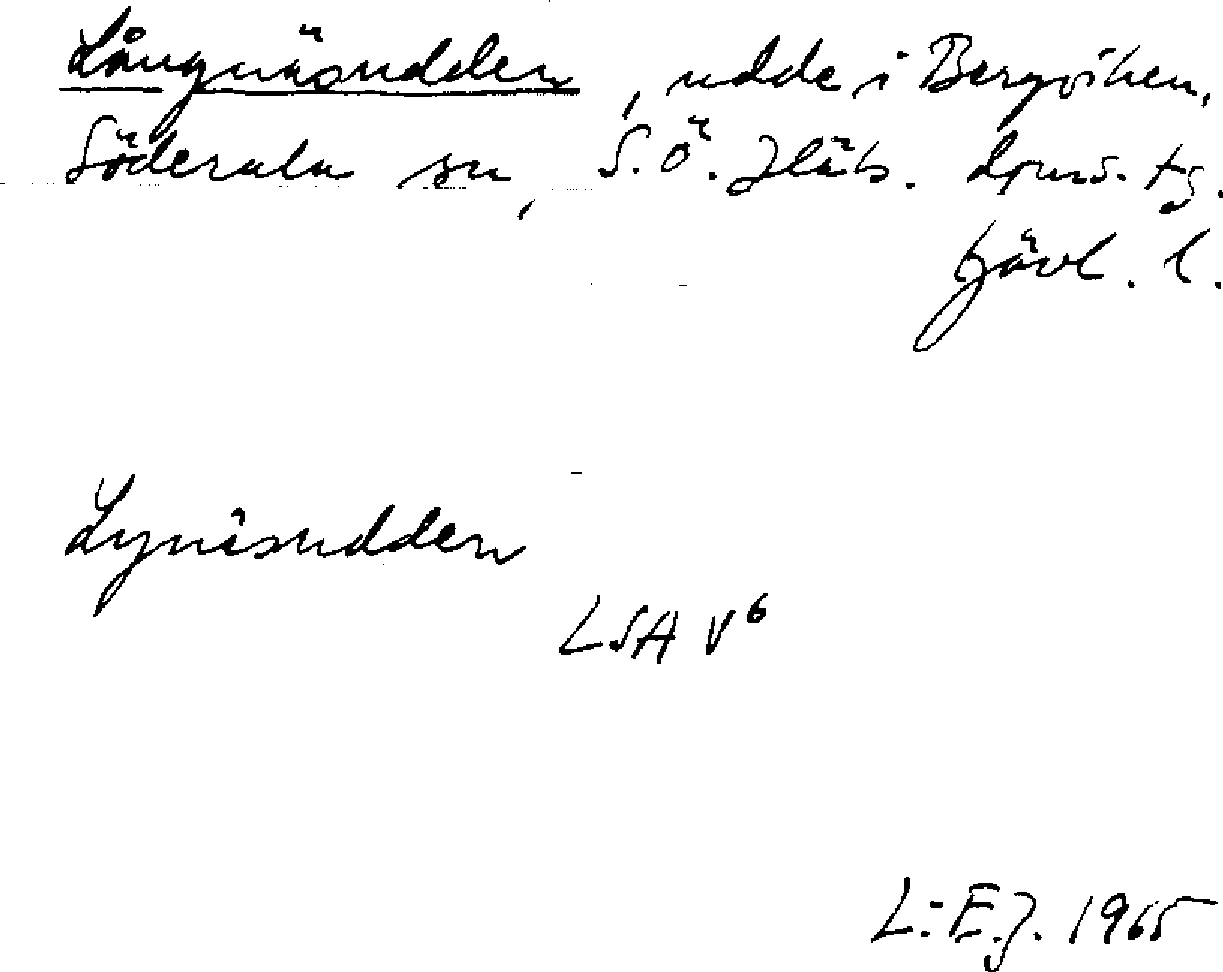 Långnäsudden, udde i Bergviken,
Söderala sn, S.Ö. Häls. dpns. tg.
Gävl. l.
Lynäsudden
LSA V6
L.-E.J. 1965